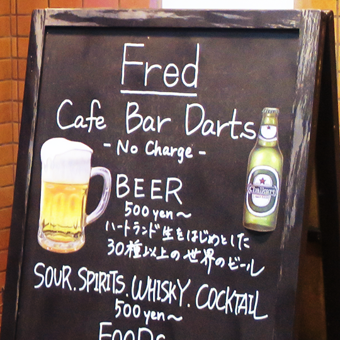 Fred
Cafe Bar Darts
- No Charge -
BEER
500yen〜
ハートランド生をはじめとした
30種以上の世界のビール
SOUR. SPIRITS. WHISKY. COCKTAIL
500yen〜
FOODS